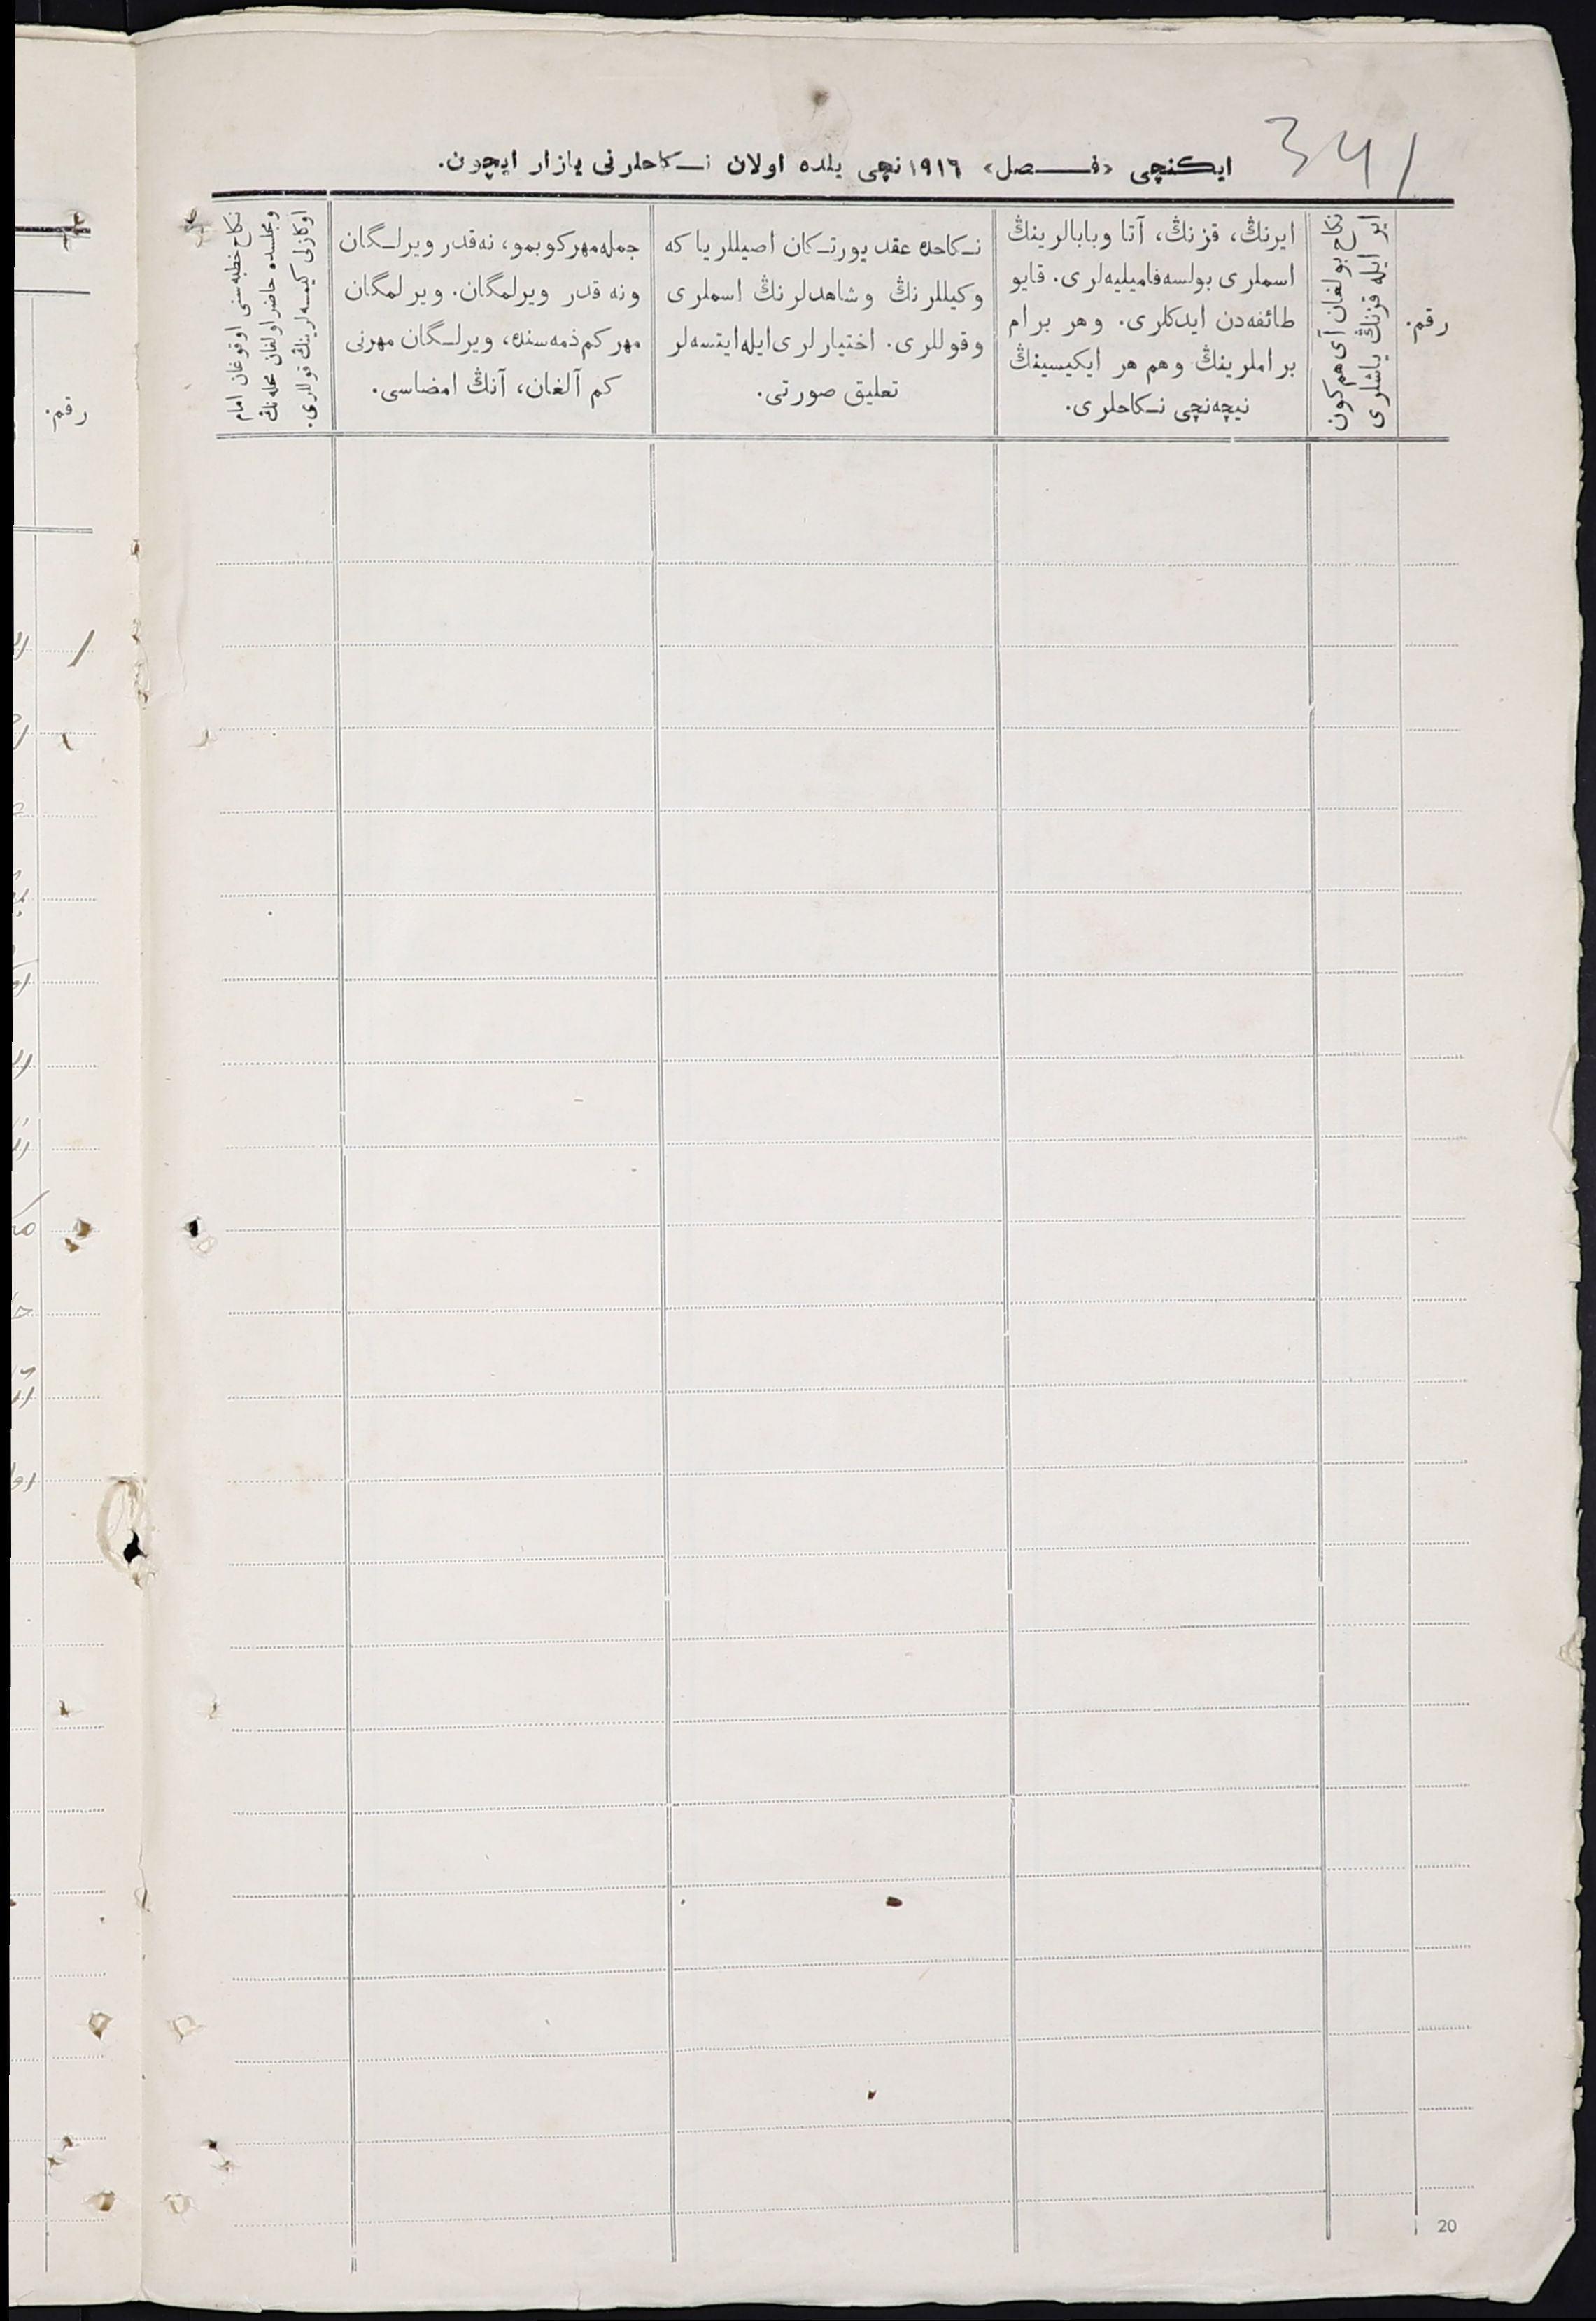 341
ایكنچی «فـــصل» ١٩١٦ نچی یلده اولان نـكاحلرنی یازار ایچون.
رقم.
ایر ایله قزنڭ یاشلری
نكاح بولغان آی هم كون
ایرنڭ، قزنڭ، آتا وبابالرینڭ
اسملری بولسه فامیلیه‌لری. قایو
طائفه‌دن ایدكلری. وهر برام
براملرینڭ وهم هر ایكیسینڭ
نیچه‌نچی نـكاحلری.
نـكاحده عقد یورتـكان اصیللریا كه
وكیللرنڭ وشاهدلرنڭ اسملری
وقوللری. اختیارلری ایله ایتسه‌لر
تعلیق صورتی.
جمله مهر كوبمو، نه‌قدر ویرلـگان
ونه قدر ویرلمگان. ویرلمگان
مهر كم ذمه‌سنده، ویرلـگان مهرنی
كم آلغان، آنڭ امضاسی.
نكاح خطبه‌سنی اوقوغان امام
ومجلسده حاضر اولغان محله‌نڭ
اوكازلی كیمسه‌لرینڭ قوللری.
رقم.
20